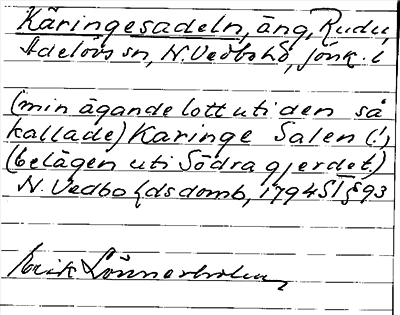 Käringesadeln, äng, Rudu,
Adelövs sn, N. Vedbo hd, Jönk. l
(min ägande lott uti den så
kallade) Karinge Salen (!,
(belägen uti Södra gjerdet.)
N. Vedbo hds domb, 1794 ST § 93
Erik Lönnerholm